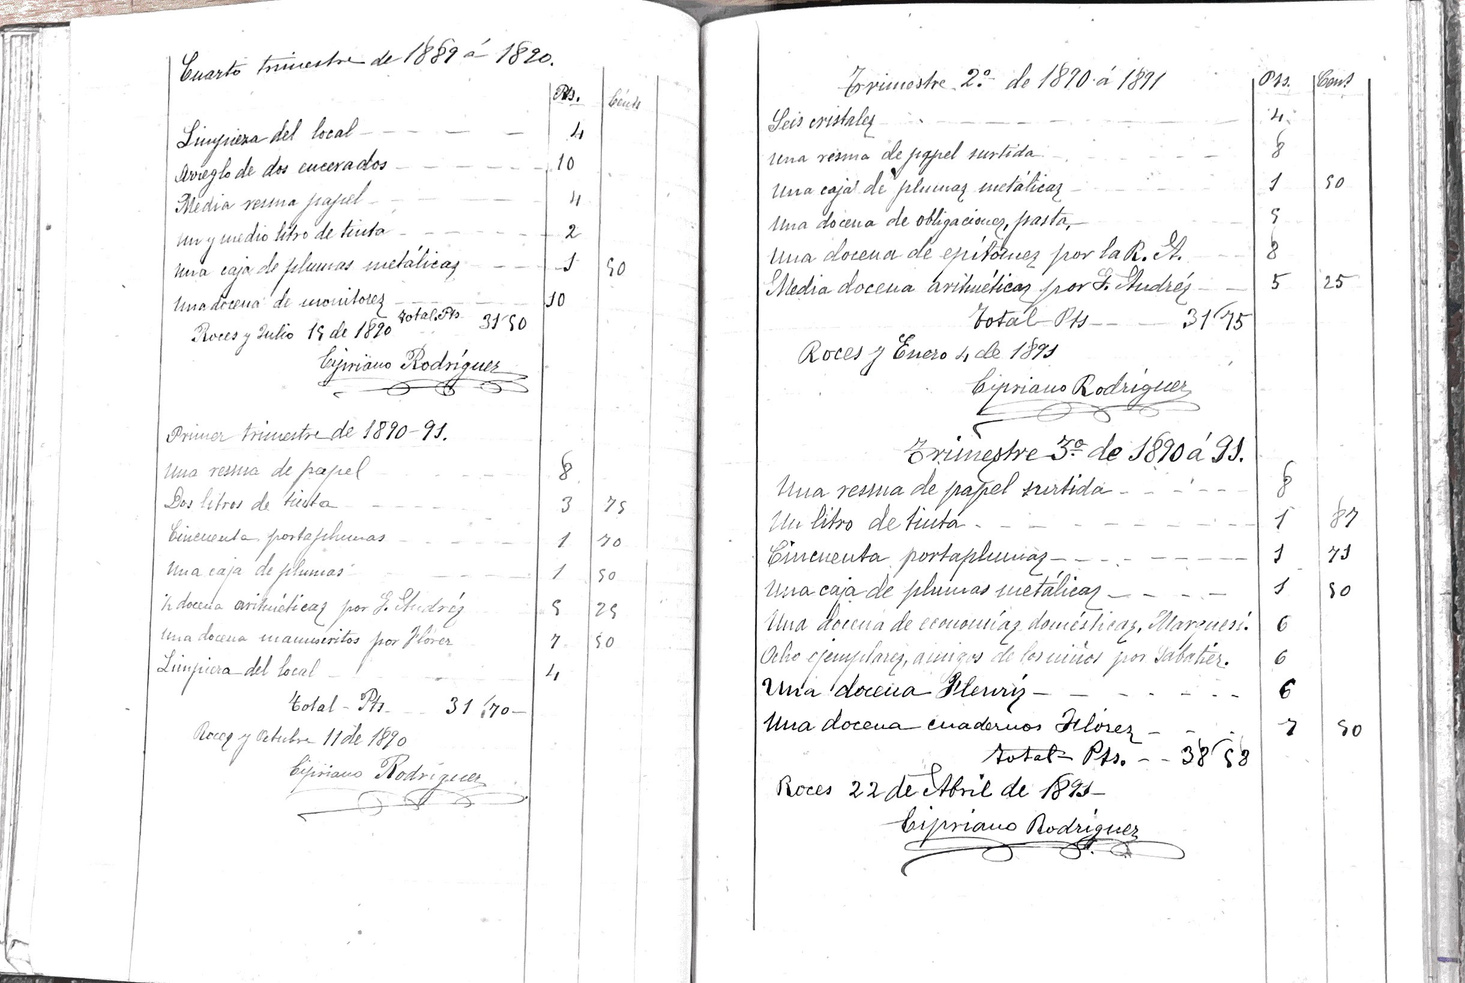 Cuarto trimestre de 1889 á 1890.
Pts. Cénts
Limpieza del local 4
Arreglo de dos encerados 10
Media resma papel 4
Un y medio litro de tinta 2
Una caja de plumas metálicas 1 50
Una docena de monitores 10
Total Pts 31'50
Roces y Julio 15 de 1890
Cipriano Rodríguez
Primer trimestre de 1890-91.
Una resma de papel 8
Dos litros de tinta 3 75
Cincuenta portaplumas 1 70
Una caja de plumas 1 50
½ docena aritméticas por G. Andrés 5 25
Una docena manuscritos por Flórez 7 50
Limpieza del local 4
Total - Pts 31'70
Roces y Octubre 11 de 1890
Cipriano Rodríguez
Trimestre 2º de 1890 á 1891
Pts. Cent
Seis cristales 4
Una resma de papel surtida 8
Una caja de plumas metálicas 1 50
Una docena de obligaciones, pasta, 5
Una docena de epítomes por la R. A. 8
Media docena aritméticas por G. Andrés 5 25
Total Pts 31'75
Roces y Enero 4 de 1891
Cipriano Rodríguez
Trimestre 3º de 1890 á 91.
Una resma de papel surtida 8
Un litro de tinta 1 87
Cincuenta portaplumas 1 71
Una caja de plumas metálicas 1 50
Una docena de economías domésticas, 6
Ocho ejemplares, amigos de los niños por Sabatier. 6
Una docena Fleury 6
Una docena cuadernos Flórez 7 50
total Pts. 38'58
Roces 22 de Abril de 1891
Cipriano Rodríguez